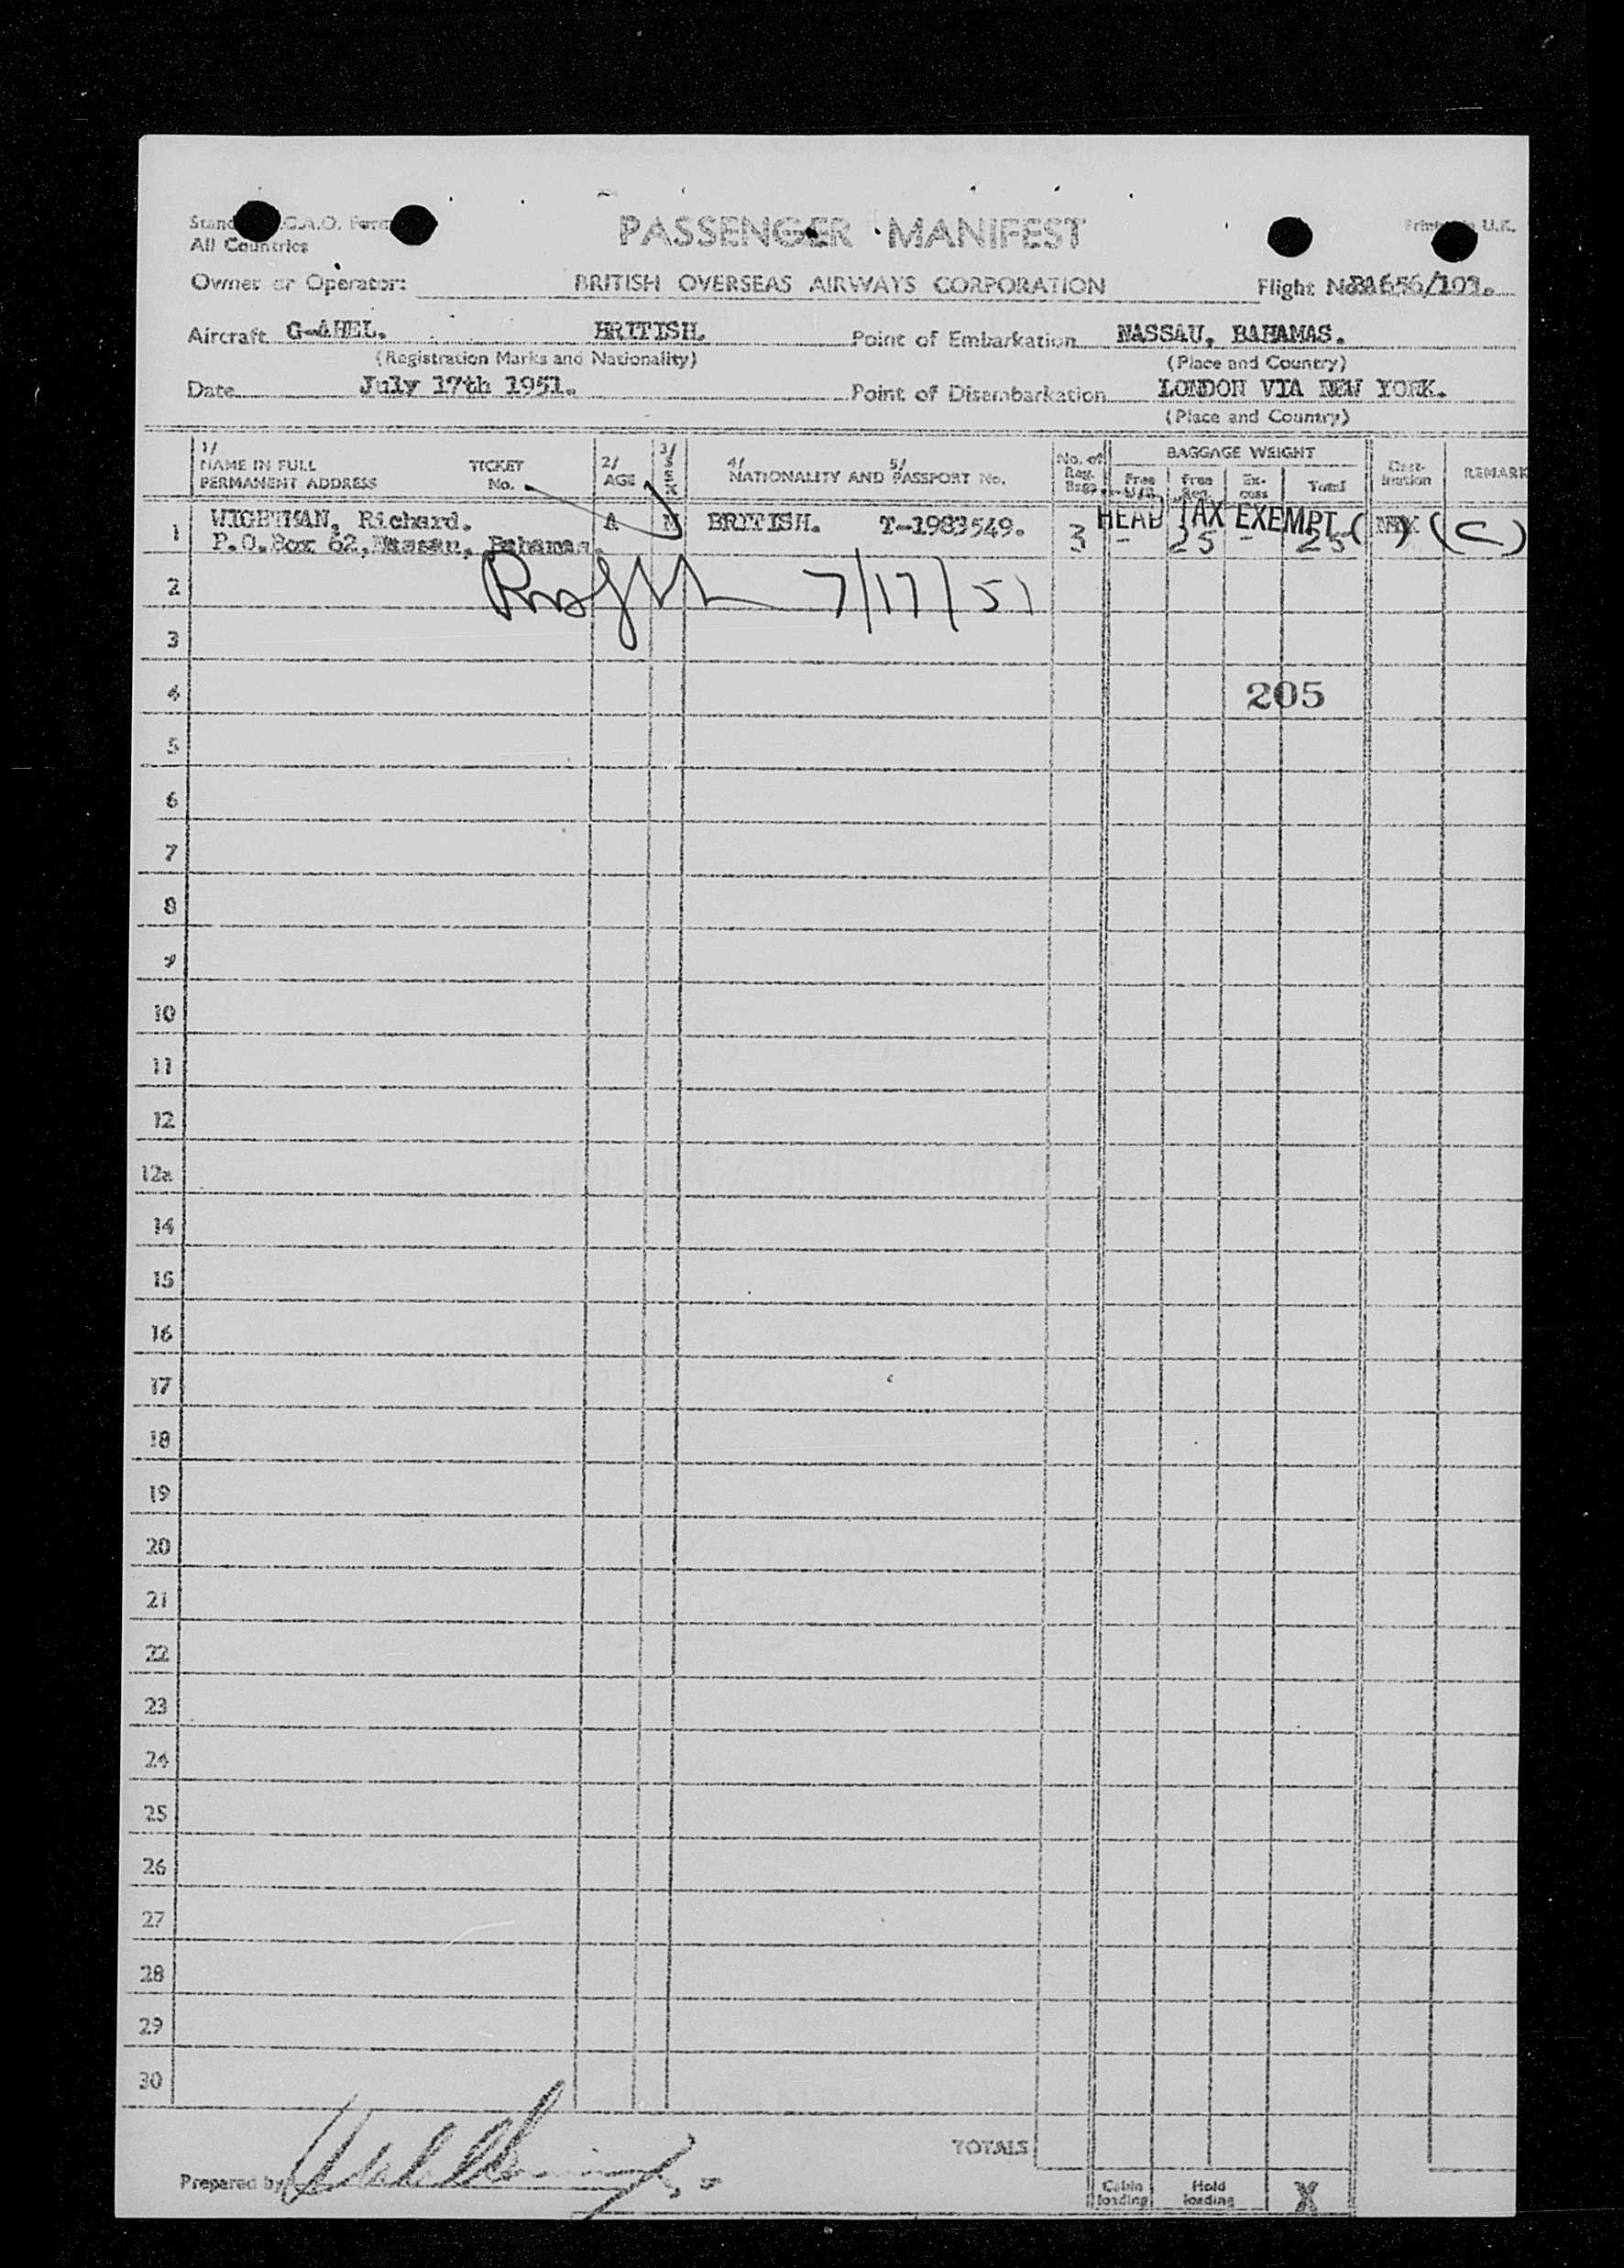 All Countries
PASSENGER MANIFEST
Printed in U.K.
Owner or Operator: BRITISH OVERSEAS AIRWAYS CORPORATION Flight No.
Aircraft G-AHEL. BRITISH. Point of Embarkation NASSAU, BAHAMAS.
(Registration Marks and Nationality) (Place and Country)
Date July 17th 1951. Point of Disembarkation LONDON VIA NEW YORK.
(Place and Country)
1/ NAME IN FULL PERMANENT ADDRESS TICKET No. 2/ AGE 3/ SEX 4/ NATIONALITY AND 5/ PASSPORT No. No. of Reg. Bags BAGGAGE WEIGHT Free Free Reg. Ex-cess Total Dest-ination REMARK
1 WIGHTMAN, Richard. A M BRITISH. T-1983549. 3 HEAD TAX EXEMPT ( ) (C)
P.O.Box 62,Nassau, Bahamas. - 25 - 25
2 7/17/51
3
4 205
5
6
7
8
9
10
11
12
12a
14
15
16
17
18
19
20
21
22
23
24
25
26
27
28
29
30
TOTALS
Prepared by
Cabin loading Hold loading X